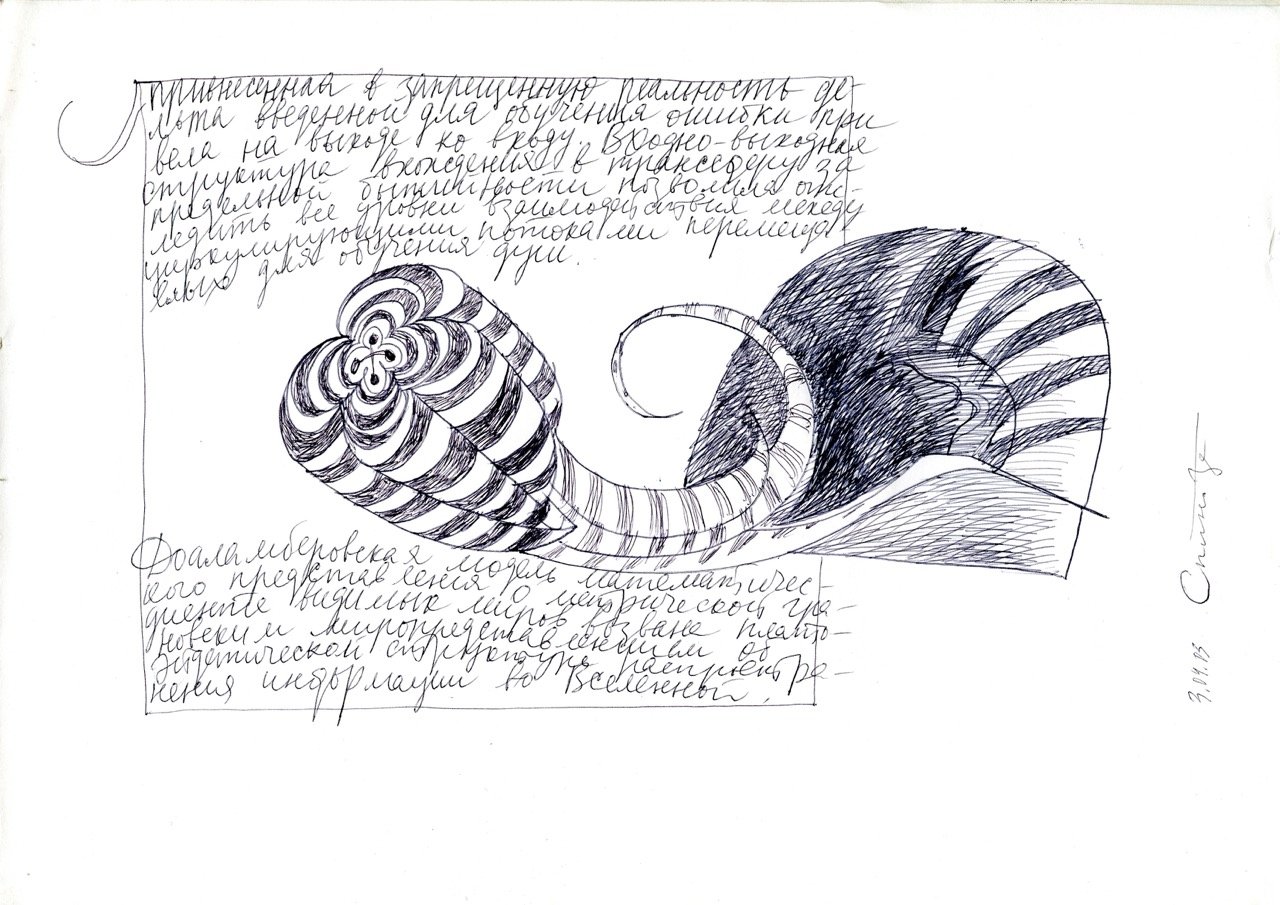 Привнесенная в запрещенную реальность де-
льта введенной для обучения ошибки при
вела на выходе ко входу. Входно-выходная
структура вхождения в трансферу за
предельной бытийности позволила отс-
ледить все уровни взаимодействия между
циркулирующими потоками перемеща
емых для обучения душ.
Доаламберовская модель математичес-
кого представления о метрической гра-
диенте видимых миров возвана плато-
новским миропредставлением об
эйдетической структуре распростра-
нения информации во Вселенной.
3.04.93